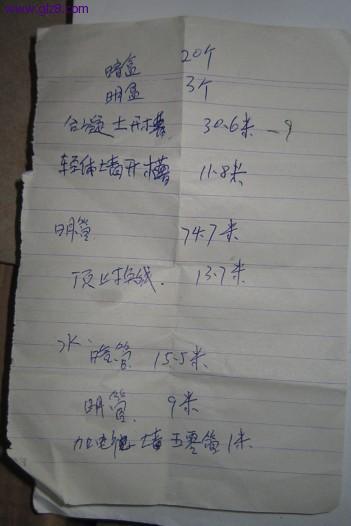 www.glz8.com
暗盒 20个
明盒 3个
台凝土开槽 30.6米 -9
轻体墙开槽 11.8米
明管 74.7米
顶上拉线. 13.7米
水: 暗管 15.5米
明管 9米
加电 墙 五零管 1米